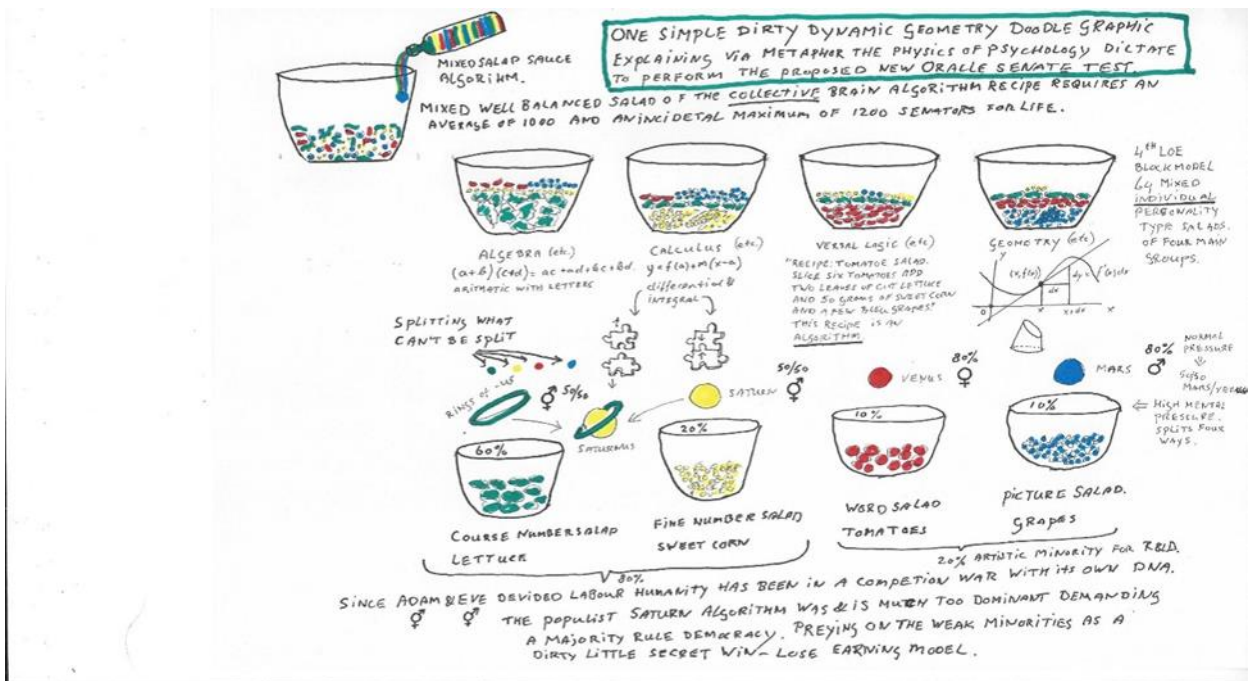 ONE SIMPLE DIRTY DYNAMIC GEOMETRY DOODLE GRAPHIC
EXPLAINING VIA METAPHOR THE PHYSICS OF PSYCHOLOGY DICTATE
TO PERFORM THE PROPOSED NEW ORACLE SENATE TEST.
MIXED SALAD SAUCE
ALGORITHM.
MIXED WELL BALANCED SALAD OF THE COLLECTIVE BRAIN ALGORITHM RECIPE REQUIRES AN
AVERAGE OF 1000 AND AN INCIDETAL MAXIMUM OF 1200 SENATORS FOR LIFE.
4TH LOE
BLOCKMODEL
64 MIXED
INDIVIDUAL
PERSONALITY
TYPE SALADS.
OF FOUR MAIN
GROUPS.
ALGEBRA (etc.)
(a+b)(c+d)= ac+ad+bc+bd.
ARITMATIC WITH LETTERS
CALCULUS (etc)
y=f(a)+m(x-a)
differential &
integral
VERSAL LOGIC (etc)
"RECIPE: TOMATOR SALAD.
SLICE SIX TOMATOES ADD
TWO LEAVES OF CUT LETTUCE
AND 50 GRAMS OF SWEET CORN
AND A FEW BLEU GRAPES."
THIS RECIPE IS AN
ALGORITHM
GEOMETRY (etc)
y
(x, f(x))
dy = f'(x)dx
dx
0
x
x+dx
x
SPLITTING WHAT
CAN'T BE SPLIT
RINGS OF -US
50/50
SATURNUS
SATURN
50/50
VENUS
80%
♀
MARS
80%
♂
NORMAL
PRESSURE
50/50
MARS/VENUS
HIGH MENTAL
PRESSURE.
SPLITS FOUR
WAYS.
60%
20%
10%
10%
COURSE NUMBERSALAD
LETTUCE
FINE NUMBER SALAD
SWEET CORN
WORD SALAD
TOMATOES
PICTURE SALAD.
GRAPES
80%
20% ARTISTIC MINORITY FOR R&D.
SINCE ADAM & EVE DEVIDED LABOUR HUMANITY HAS BEEN IN A COMPETION WAR WITH ITS OWN DNA.
THE POPULIST SATURN ALGORITHM WAS & IS MUCH TOO DOMINANT DEMANDING
A MAJORITY RULE DEMOCRACY. PREYING ON THE WEAK MINORITIES AS A
DIRTY LITTLE SECRET WIN-LOSE EARNING MODEL.